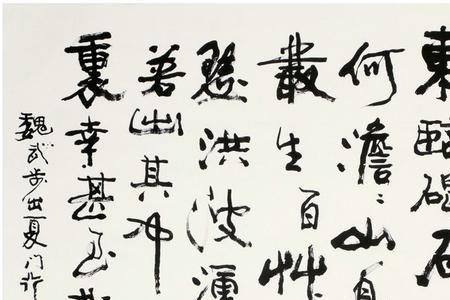 東臨碣石
何澹〻山島
叢生百艸
瑟洪波湧
若出其中
裏幸甚至哉
魏武步出夏门行